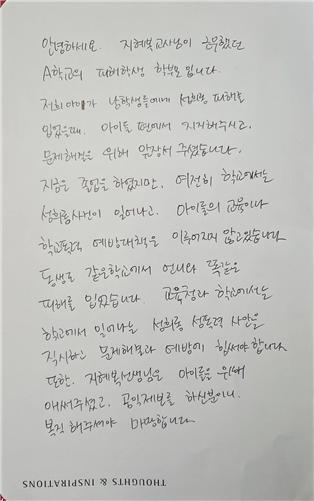 안녕하세요. 지혜복교사님이 근무했던
A학교의 피해학생 학부모 입니다.
저희 아이가 남학생들에게 성희롱 피해를
입었을때. 아이들 편에서 지지해주시고.
문제해결을 위해 앞장서 주셨습니다.
지금은 졸업을 하였지만. 여전히 학교에서는
성희롱사건이 일어나고. 아이들의 교육이나
학교폭력 예방대책은 이루어지지 않고있습니다
동생도 같은학교에서 언니와 똑같은
피해를 입었습니다. 교육청과 학교에서는
학교에서 일어나는 성희롱 성폭력 사안을
직시하고 문제해결과 예방에 힘써야 합니다
또한. 지혜복선생님은 아이들을 위해
애써주셨고. 공익제보를 하신분이니.
복직 해주셔야 마땅합니다.
THOUGHTS & INSPIRATIONS